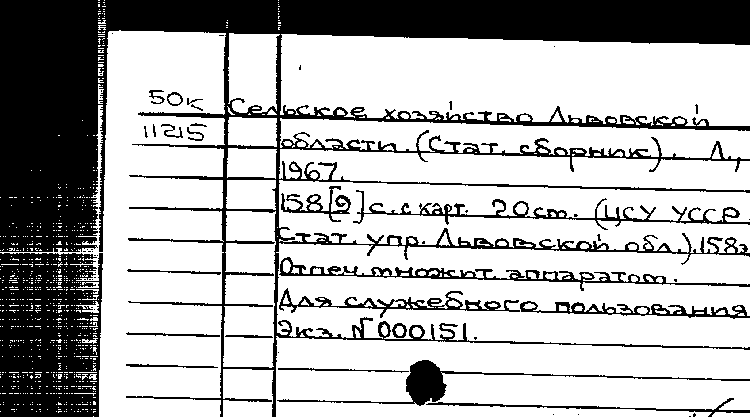 50к Сельское хозяйство Львовской
11215 области. (Стат. сборник). Л.,
1967.
158[9] с. с карт. 20 см. (ЦСУ УССР.
Стат. упр. Львовской обл.). 158э
Отпеч. множит. аппаратом.
Для служебного пользования
Экз. №000151.